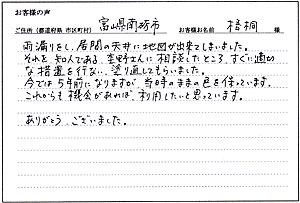 お客様の声
ご住所(都道府県 市区町村) 富山県南砺市 お客様お名前 梧桐 様
雨漏りをし、居間の天井に地図が出来てしまいました。
それを、知人である、杢野さんに相談したところ、すぐに適切
な措置を行ない、塗り直してもらいました。
今では5年前になりますが、当時のままの色を保っています。
これからも機会があれば、利用したいと思っています。
ありがとうございました。